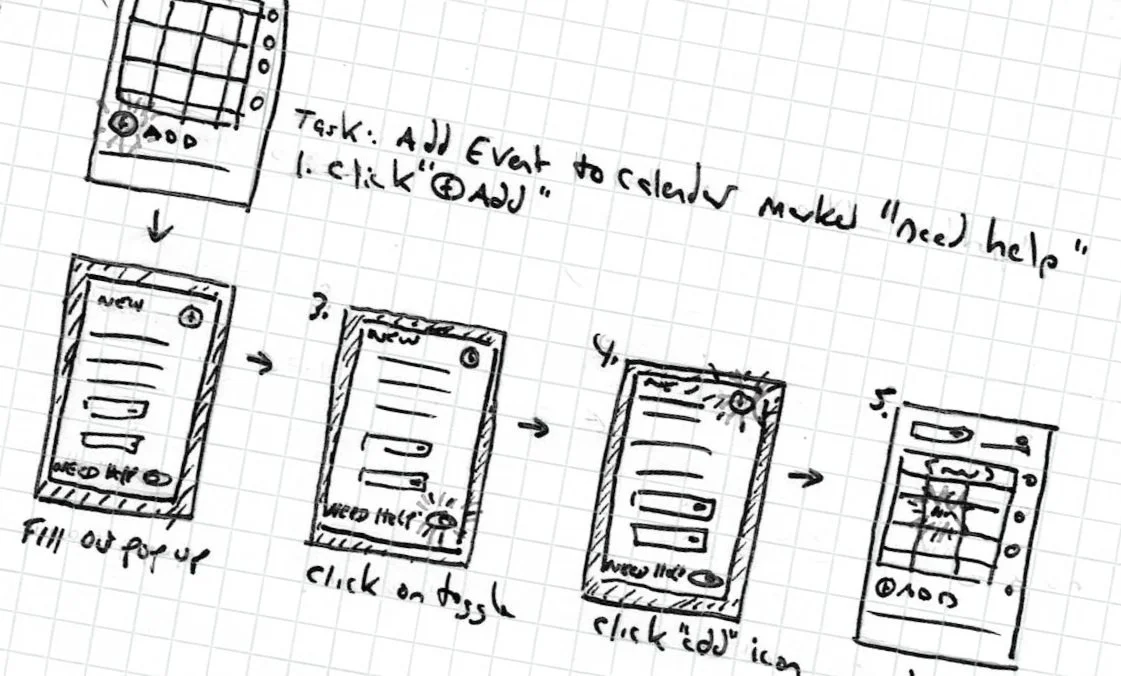 ⊕ ADD
Task: Add Event to calender marked "need help"
1. click "⊕ Add"
NEW
NEED Help
Fill out pop up
3.
NEW
NEED Help
click on toggle
4.
NE
NEED Help
click "add" icon
5.
⊕ ADD